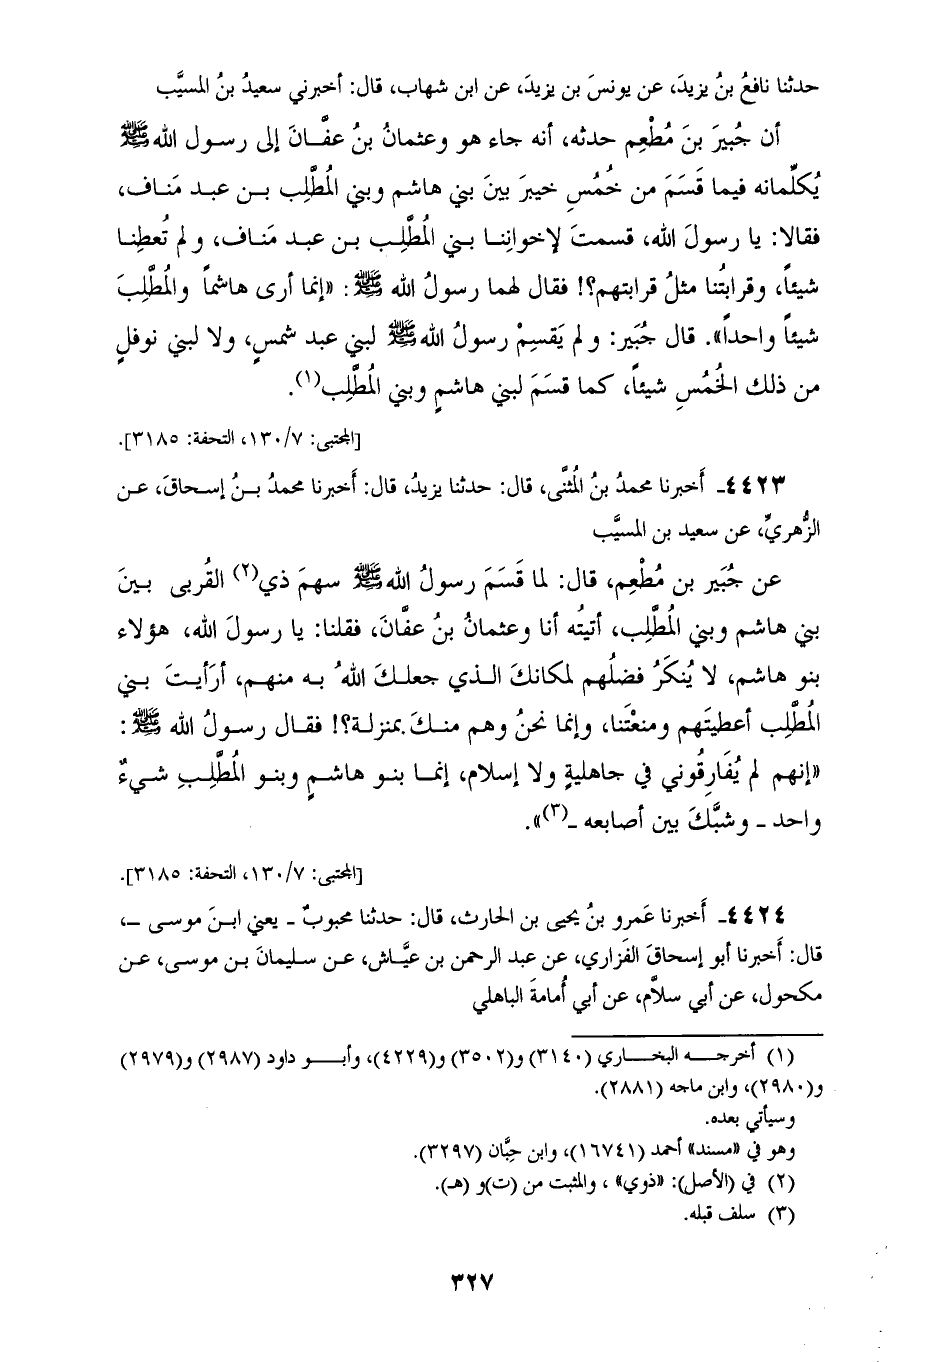 حدثنا نافعُ بنُ يزيدَ، عن يونسَ بن يزيدَ، عن ابن شهاب، قال: أخبرني سعيدُ بنُ المسيَّب
أن جُبيرَ بنَ مُطْعِم حدثه، أنه جاء هو وعثمانُ بنُ عفَّانَ إلى رسول الله ﷺ
يُكلِّمانه فيما قَسَمَ من خُمُسِ خيبرَ بينَ بني هاشم وبني المُطَّلِب بن عبد مَناف،
فقالا: يا رسولَ الله، قسمتَ لإخوانِنا بني المُطَّلِب بن عبد مَناف، ولم تُعطِنا
شيئاً، وقرابتُنا مثلُ قرابتهم؟! فقال لهما رسولُ الله ﷺ: «إنما أرى هاشماً والمُطَّلِبَ
شيئاً واحداً». قال جُبَير: ولم يَقسِمْ رسولُ الله ﷺ لبني عبد شمسٍ، ولا لبني نوفلٍ
من ذلك الخُمُسِ شيئاً، كما قسَمَ لبني هاشمٍ وبني المُطَّلِب(١).
[المجتبى: ١٣٠/٧، التحفة: ٣١٨٥].
٤٤٢٣ـ أَخبرنا محمدُ بنُ المُثنَّى، قال: حدثنا يزيدُ، قال: أَخبرنا محمدُ بنُ إسحاقَ، عن
الزُّهريِّ، عن سعيد بن المسيَّب
عن جُبَير بن مُطْعِم، قال: لما قَسَمَ رسولُ الله ﷺ سهمَ ذي(٢) القُربى بينَ
بني هاشم وبني المُطَّلِب، أتيتُه أنا وعثمانُ بنُ عفَّانَ، فقلنا: يا رسولَ الله، هؤلاء
بنو هاشم، لا يُنكَرُ فضلُهم لمكانكَ الذي جعلكَ اللهُ به منهم، أرأيتَ بني
المُطَّلِب أعطيتَهم ومنعْتَنا، وإنما نحنُ وهم منكَ بمنزلة؟! فقال رسولُ الله ﷺ:
«إنهم لم يُفَارِقُوني في جاهليةٍ ولا إسلام، إنما بنو هاشمٍ وبنو المُطَّلِبِ شيءٌ
واحد ـ وشبَّكَ بين أصابعه ـ(٣)».
[المجتبى: ١٣٠/٧، التحفة: ٣١٨٥].
٤٤٢٤ـ أَخبرنا عَمرو بنُ يحيى بن الحارث، قال: حدثنا محبوبٌ ـ يعني ابنَ موسى ـ،
قال: أَخبرنا أبو إسحاقَ الفَزاري، عن عبد الرحمن بن عيَّاش، عن سليمانَ بن موسى، عن
مكحول، عن أبي سلاَّم، عن أبي أُمامةَ الباهلي
(١) أخرجه البخاري (٣١٤٠) و(٣٥٠٢) و(٤٢٢٩)، وأبو داود (٢٩٨٧) و(٢٩٧٩)
و(٢٩٨٠)، وابن ماجه (٢٨٨١).
وسيأتي بعده.
وهو في «مسند» أحمد (١٦٧٤١)، وابن حِبَّان (٣٢٩٧).
(٢) في (الأصل): «ذوي» ، والمثبت من (ت)و (هـ).
(٣) سلف قبله.
٣٢٧